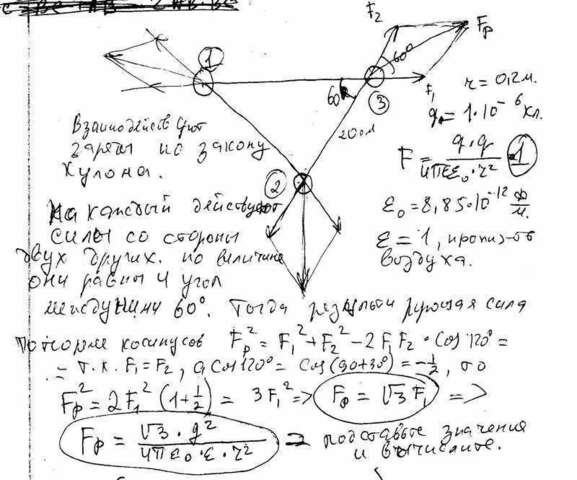 F₂
Fр
60°
①
③
F₁
60°
r = 0,2 м.
q₀ = 1·10⁻⁶ Кл.
20 см
Взаимодейств уют
заряды по закону
Кулона.
F = q·q / 4πεε₀·r² ①
②
ε₀ = 8,85·10⁻¹² Ф/м.
ε = 1, прониц-ть
воздуха.
На каждый действуют
силы со стороны
двух других. по величине
они равны и угол
между ними 60°. Тогда результирующая сила
по теореме косинусов Fр² = F₁² + F₂² - 2F₁F₂·cos 120° =
= т.к. F₁=F₂, а cos120° = cos(90+30°) = -½, то
Fр² = 2F₁²(1+½) = 3F₁² => Fр = √3 F₁ =>
Fр = √3·q² / 4πε₀·ε·r² => подставьте значения
и вычислите.